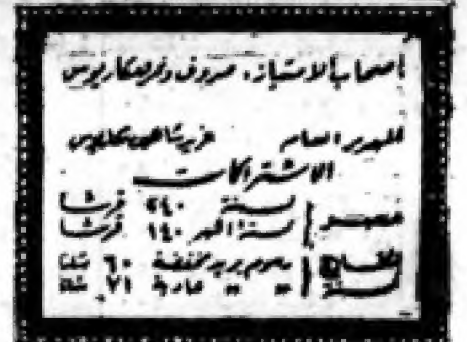 أصحاب الامتياز: صروف ونمر ومكاريوس
المدير العام
الاشتراكات
مصر
لسنة ٢٤٠ قرشا
لستة اشهر ١٤٠ قرشا
للخارج
لسنة
برسوم بريد مخفضة ٦٠ شلنا
" " عادية ٧١ شلنا